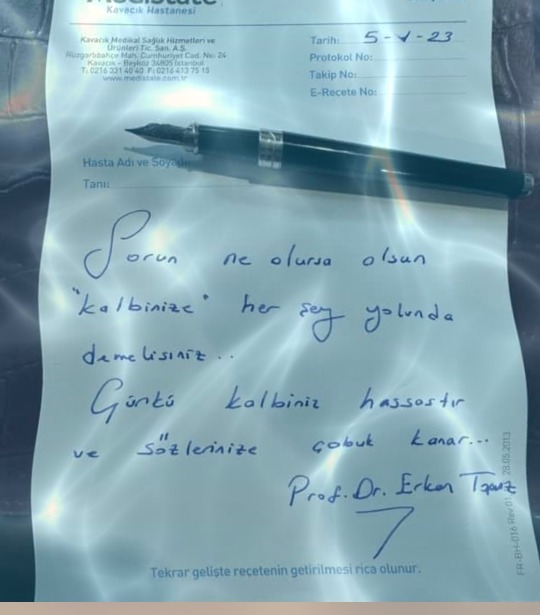 Kavacık Hastanesi
Kavacık Medikal Sağlık Hizmetleri ve
Ürünleri Tic. San. A.Ş.
Rüzgarlıbahçe Mah. Cumhuriyet Cad. No: 24
Kavacık - Beykoz 34805 İstanbul
T: 0216 331 40 40 F: 0216 413 75 15
www.medistate.com.tr
Tarih: 5-V-23
Protokol No:
Takip No:
E-Recete No:
Hasta Adı ve Soyadı
Tanı:
Sorun ne olursa olsun
"kalbinize" her şey yolunda
demelisiniz..
Günkü kalbiniz hassastır
ve sözlerinize çabuk kanar...
Prof. Dr. Erkan
Tekrar gelişte reçetenin getirilmesi rica olunur.
FR-BH-016 Rev 01 28.05.2013